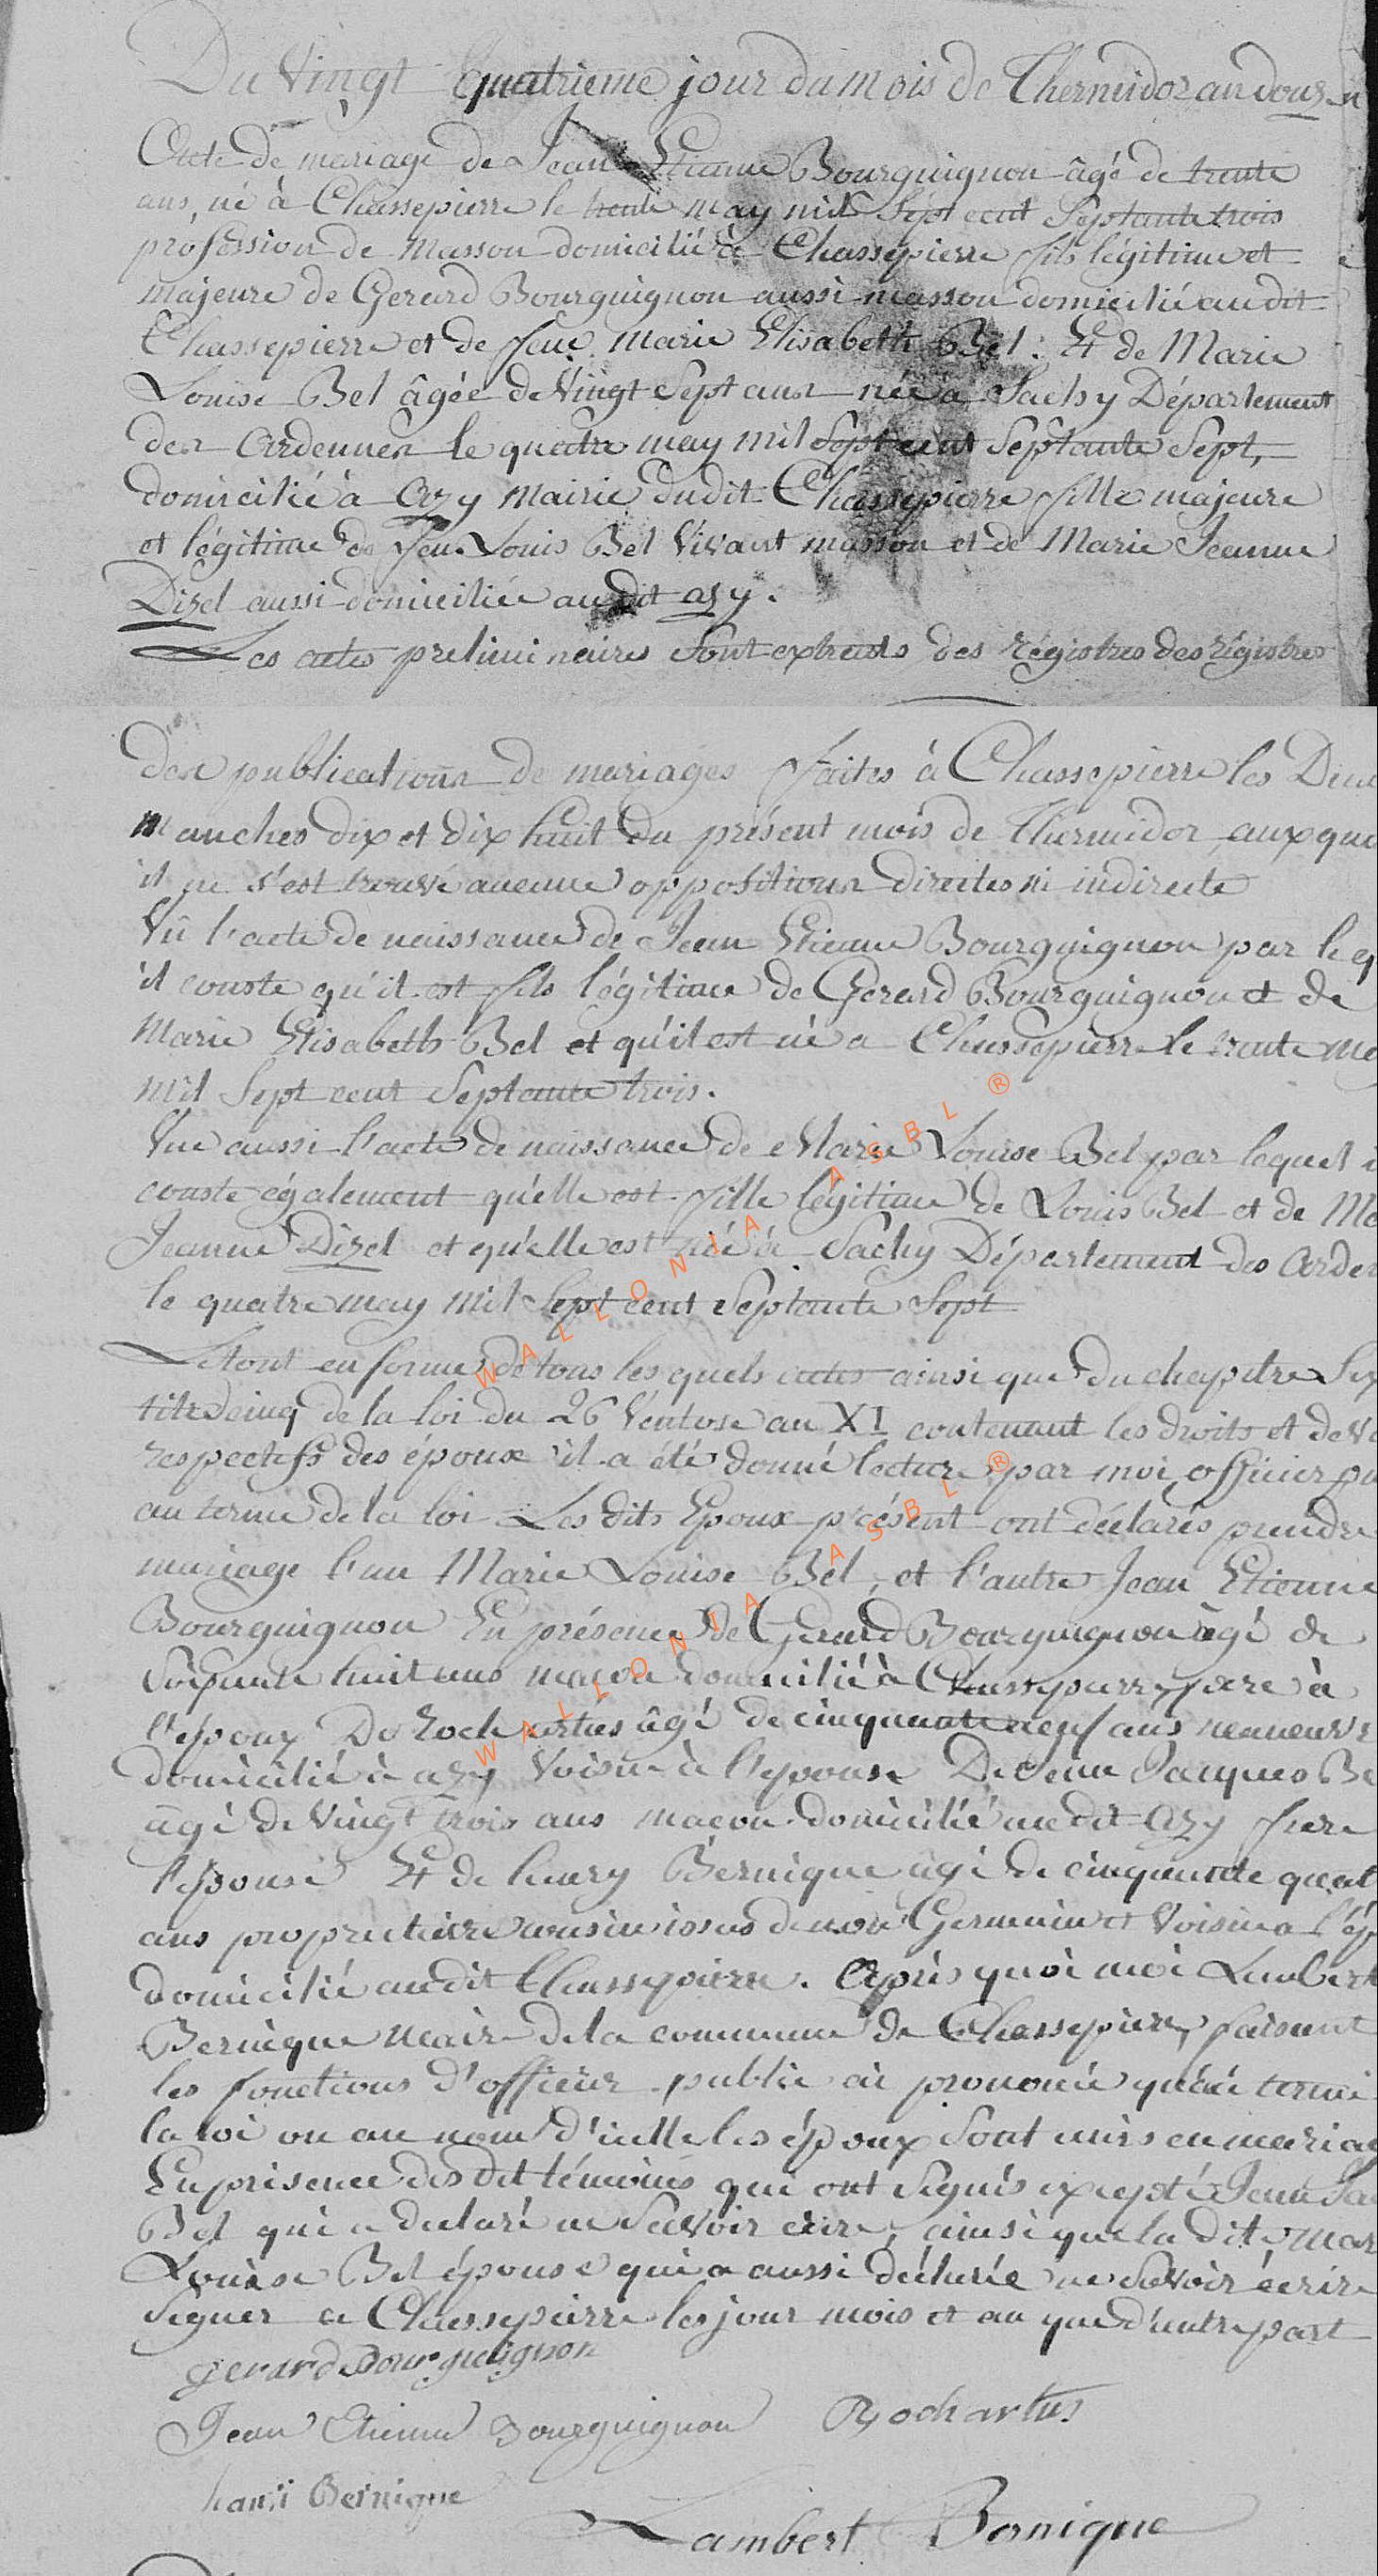 Du Vingt quatrieme jour du mois de Thermidor an douze
Acte de mariage de Jean Etienne Bourguignon âgé de trente
ans, né à Chassepierre le trente may mil sept cent septante trois
profession de masson domicilié à Chassepierre fils légitime et
majeure de Gerard Bourguignon aussi masson domicilié au dit
Chassepierre et de feue Marie Elisabeth Bel : Et de Marie
Louise Bel âgée de Vingt Sept ans née à Sachy Département
des Ardennes le quatre may mil sept cent septante sept,
domicilié à Azy Mairie du dit Chassepierre fille majeure
et légitime de feu Louis Bel Vivant masson et de Marie Jeanne
Dizel aussi domiciliée au dit azy.
Les actes preliminaires sont extraits des régistres des régistres
des publications de mariages faites à Chassepierre les Dim
manches dix et dix huit du présent mois de Thermidor auxque
il ne s'est trouvé aucune oppositions directes ni indirecte
Vû l'acte de naissance de Jean Etienne Bourguignon par leq
il conste qu'il est fils légitime de Gerard Bourguignon et de
Marie Elisabeth Bel et qu'il est né a Chassepierre le trente ma
mil sept cent septante trois.
Vue aussi l'acte de naissance de Marie Louise Bel par lequel i
conste également qu'elle est fille légitime de Louis Bel et de Ma
Jeanne Dizel et qu'elle est née à Sachy Département des Arden
le quatre may mil sept cent septante sept
Le tout en forme de tous les quels actes ainsi que du chapitre Six
titre cinq de la loi du 26 Ventose an XI contenant les droits et devo
respectifs des époux il a été donné lecture par moi officier pu
au terme de la loi Les dits Epoux présent ont déclarés prendre
mariage l'un Marie Louise Bel, et l'autre Jean Etienne
Bourguignon En présence de Gerard Bourguignon âgé de
Soixante huit ans maçon domicilié à Chassepierre père à
l'époux De Roch artus âgé de cinquante neuf ans manœuvre
domicilié à azy Voisin à l'epouse De Jean Jacques Be
agé de Vingt trois ans maçon domicilié au dit Azy frere
l'epouse Et de henry Bernique âgé de cinquante quat
ans proprietaire cousin issus de non Germain et Voisin a l'ép
domicilié au dit Chassepierre. Après quoi moi Lambert
Bernique Maire de la commune de Chassepierre, faisant
les fonctions d'officier public ai prononcé qu'au terme
la loi ou au nom d'icelle les époux sont unis en mariag
En présence des dit témoins qui ont signés excepté Jean Ja
Bel qui a declaré ne Savoir ecrire, ainsi que la dite Mar
Louise Bel épouse qui a aussi déclarée ne Savoir écrire
Signer a Chassepierre les jour mois et an que d'autre part
gerard Bourguignon
Jean Etienne Bourguignon Rochartus
hanri Bernique
Lambert Bernique
WALLONIA ASBL ®
WALLONIA ASBL ®